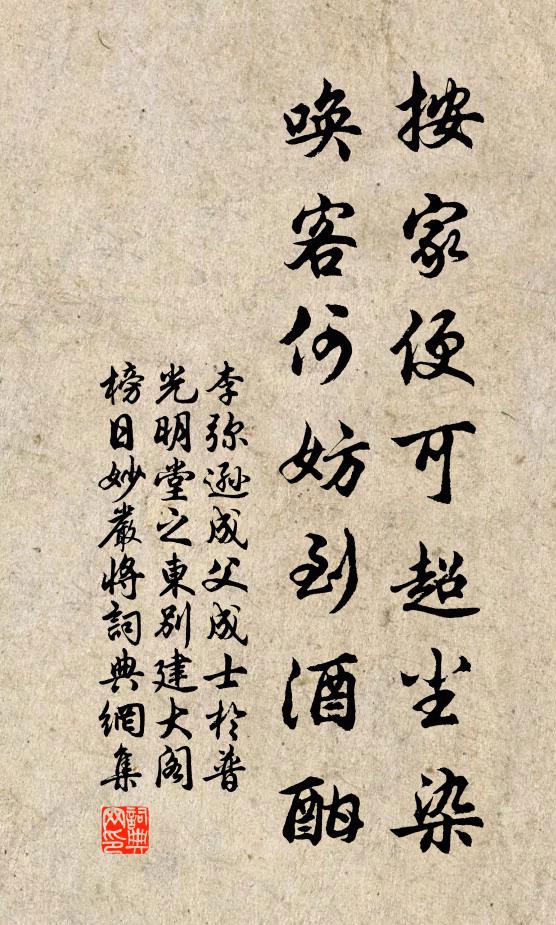 按家便可超尘染
唤客何妨到酒酣
李弥逊成父成士於普
光明堂之東别建大阁
榜日妙嚴将詞典網集
詞典网印